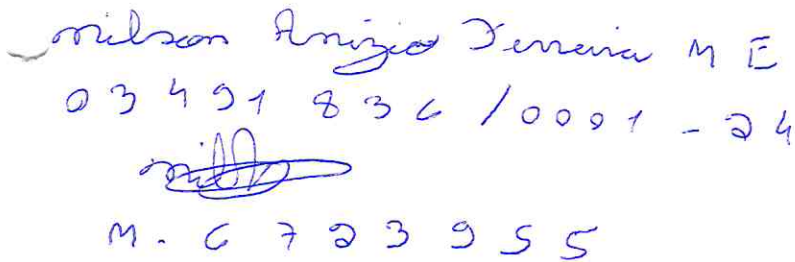 Milson Anizio Ferreira M E
03 491 836 / 0001 - 24
M. 6723955